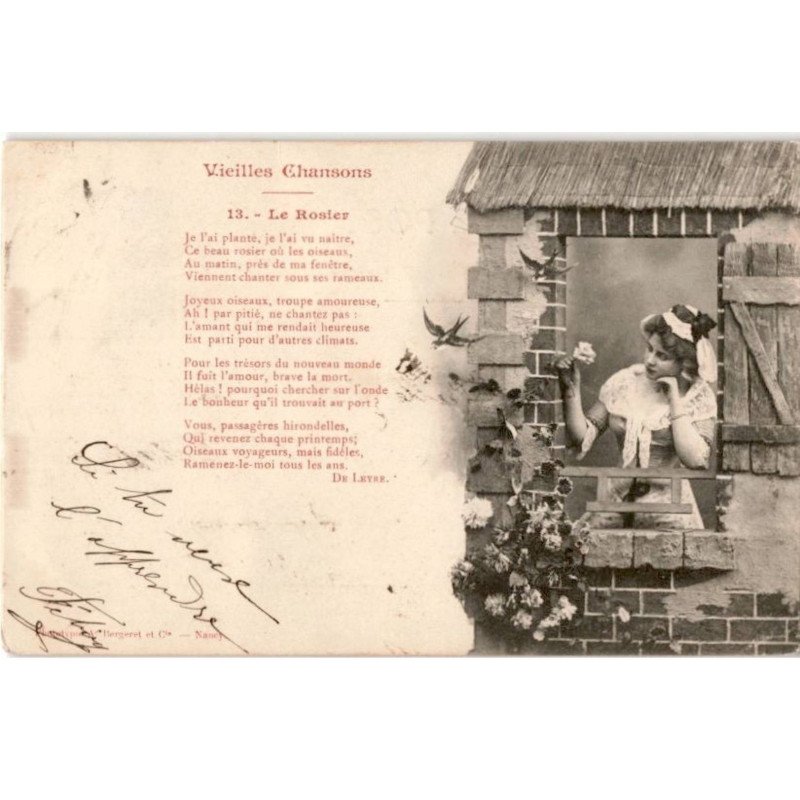 Vieilles Chansons
13. - Le Rosier
Je l'ai planté, je l'ai vu naître,
Ce beau rosier où les oiseaux,
Au matin, près de ma fenêtre,
Viennent chanter sous ses rameaux.
Joyeux oiseaux, troupe amoureuse,
Ah ! par pitié, ne chantez pas :
L'amant qui me rendait heureuse
Est parti pour d'autres climats.
Pour les trésors du nouveau monde
Il fuit l'amour, brave la mort.
Hélas ! pourquoi chercher sur l'onde
Le bonheur qu'il trouvait au port ?
Vous, passagères hirondelles,
Qui revenez chaque printemps;
Oiseaux voyageurs, mais fidèles,
Ramenez-le-moi tous les ans.
De Leyre.
Si tu veux
l'apprendre
Bergeret et Cie — Nancy